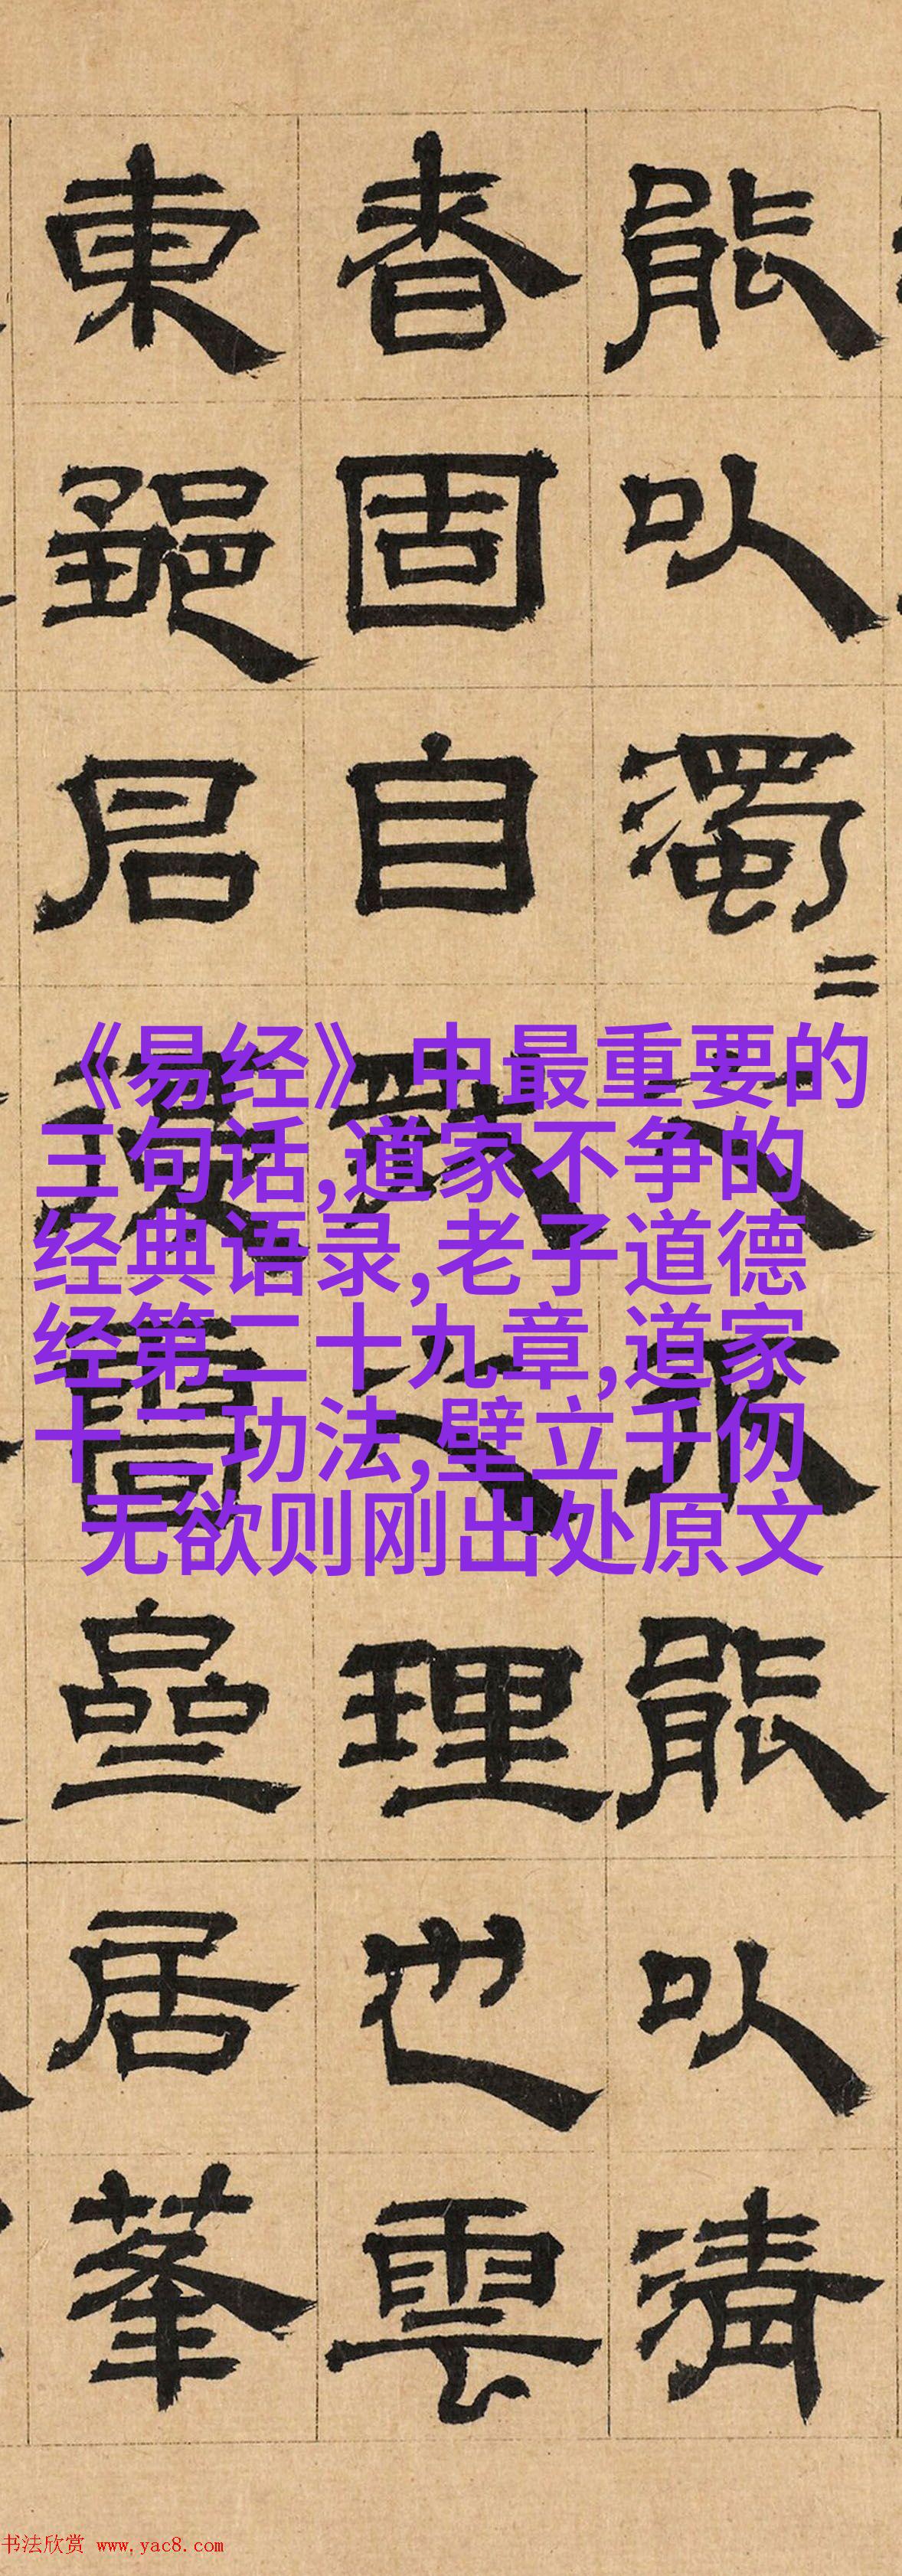 能以濁二
能以清
者固自
之理也雲
東
居
《易经》中最重要的
三句话,道家不争的
经典语录,老子道德
经第二十九章,道家
十二功法,壁立千仞
无欲则刚出处原文
书法欣赏 www.yac8.com